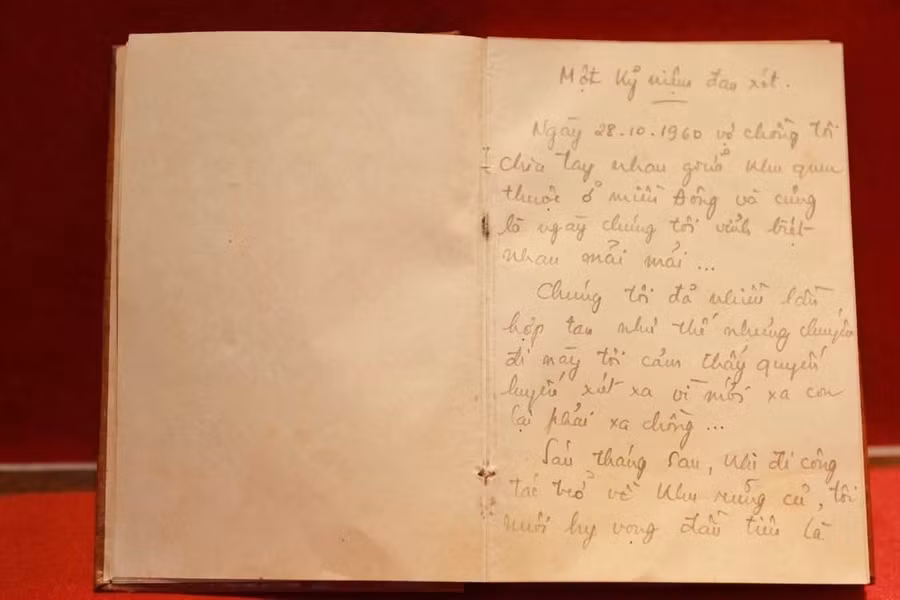 Một kỷ niệm đau xót.
Ngày 28.10.1960 vợ chồng tôi
chia tay nhau giữa khu quen
thuộc ở miền Đông và cũng
là ngày chúng tôi vĩnh biệt
nhau mãi mãi ...
Chúng tôi đã nhiều lần
hợp tan như thế nhưng chuyến
đi này tôi cảm thấy quyến
luyến xót xa vì mới xa con
lại phải xa chồng ...
Sáu tháng sau, khi đi công
tác trở về khu rừng cũ, tôi
nuôi hy vọng đầu tiên là